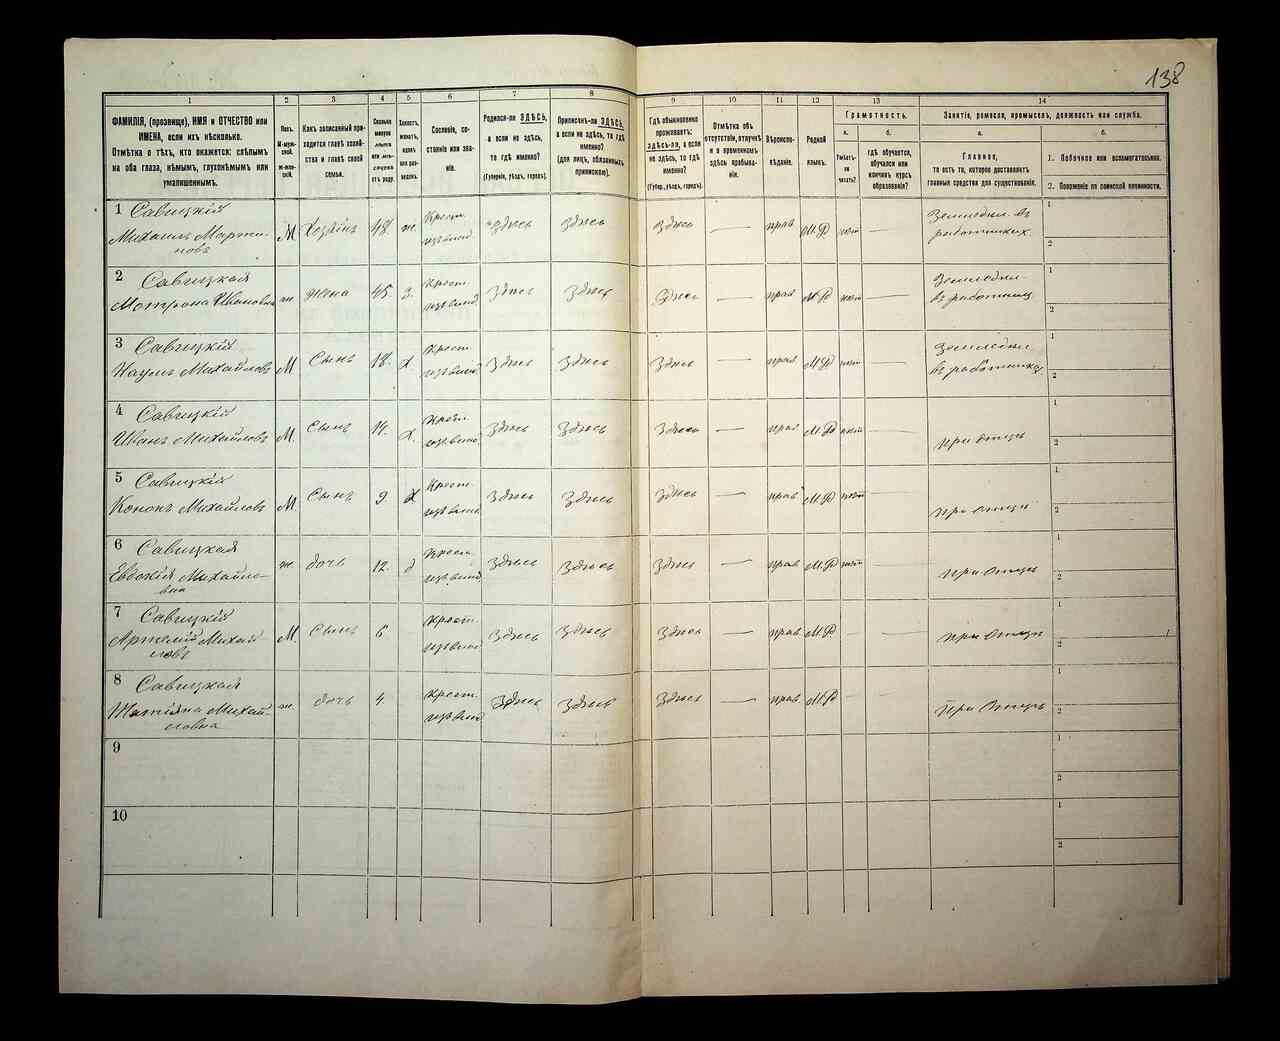 138
1 2 3 4 5 6 7 8 9 10 11 12 13 14
ФАМИЛІЯ, (прозвище), ИМЯ и ОТЧЕСТВО или
ИМЕНА, если ихъ нѣсколько.
Отмѣтка о тѣхъ, кто окажется: слѣпымъ
на оба глаза, нѣмымъ, глухонѣмымъ или
умалишеннымъ.
Полъ.
М-муж-
ской.
Ж-жен-
скій.
Какъ записанный при-
ходится главѣ хозяй-
ства и главѣ своей
семьи.
Сколько
минуло
лѣтъ
или мѣ-
сяцевъ
отъ роду.
Холостъ,
женатъ,
вдовъ
или раз-
веденъ.
Сословіе, со-
стояніе или зва-
ніе.
Родился-ли ЗДѢСЬ,
а если не здѣсь,
то гдѣ именно?
(Губернія, уѣздъ, городъ).
Приписанъ-ли ЗДѢСЬ,
а если не здѣсь, то гдѣ
именно?
(для лицъ, обязанныхъ
припиской).
Гдѣ обыкновенно
проживаетъ:
здѣсь-ли, а если
не здѣсь, то гдѣ
именно?
(Губер., уѣздъ, городъ).
Отмѣтка объ
отсутствіи, отлучкѣ
и о временномъ
здѣсь пребыва-
ніи.
Вѣроиспо-
вѣданіе.
Родной
языкъ.
Грамотность.
а.
Умѣетъ-
ли
читать?
б.
гдѣ обучается,
обучался или
кончилъ курсъ
образованія?
Занятіе, ремесло, промыселъ, должность или служба.
а.
Главное,
то есть то, которое доставляетъ
главныя средства для существованія.
б.
1. Побочное или вспомогательное.
2. Положеніе по воинской повинности.
1 Савицкій
Михаилъ Марти-
новъ М Хозяинъ 48. ж. Крест. здѣсь здѣсь здѣсь — прав М.Р нѣт — Земледѣл. въ
работникахъ 1 2
2 Савицкая
Мотрона Ивановна ж. жена 45. з. Крест. здѣсь здѣсь здѣсь — прав М.Р нѣт — Земледѣл.
въ работниц. 1 2
3 Савицкій
Наумъ Михайловъ М Сынъ 18. х Крест. здѣсь здѣсь здѣсь — прав М.Р нѣт — Земледѣл.
въ работникахъ 1 2
4 Савицкій
Иванъ Михайловъ М. Сынъ 14. х. Крест. здѣсь здѣсь здѣсь — прав М.Р нѣт — при отцѣ 1 2
5 Савицкій
Кононъ Михайловъ М. Сынъ 9 х Крест. здѣсь здѣсь здѣсь — прав М.Р нѣт — при Отцѣ 1 2
6 Савицкая
Евдокія Михайло-
вна ж. дочь 12. д Крест. здѣсь здѣсь здѣсь — прав М.Р нѣт — при Отцѣ 1 2
7 Савицкій
Артемій Михай
ловъ М. Сынъ 6 Крест. здѣсь здѣсь здѣсь — прав. М.Р — — при Отцѣ 1 2
8 Савицкая
Татіяна Михай-
ловна ж. дочь 4. Крест. здѣсь здѣсь здѣсь — прав. М.Р — — При Отцѣ 1 2
9 1 2
10 1 2